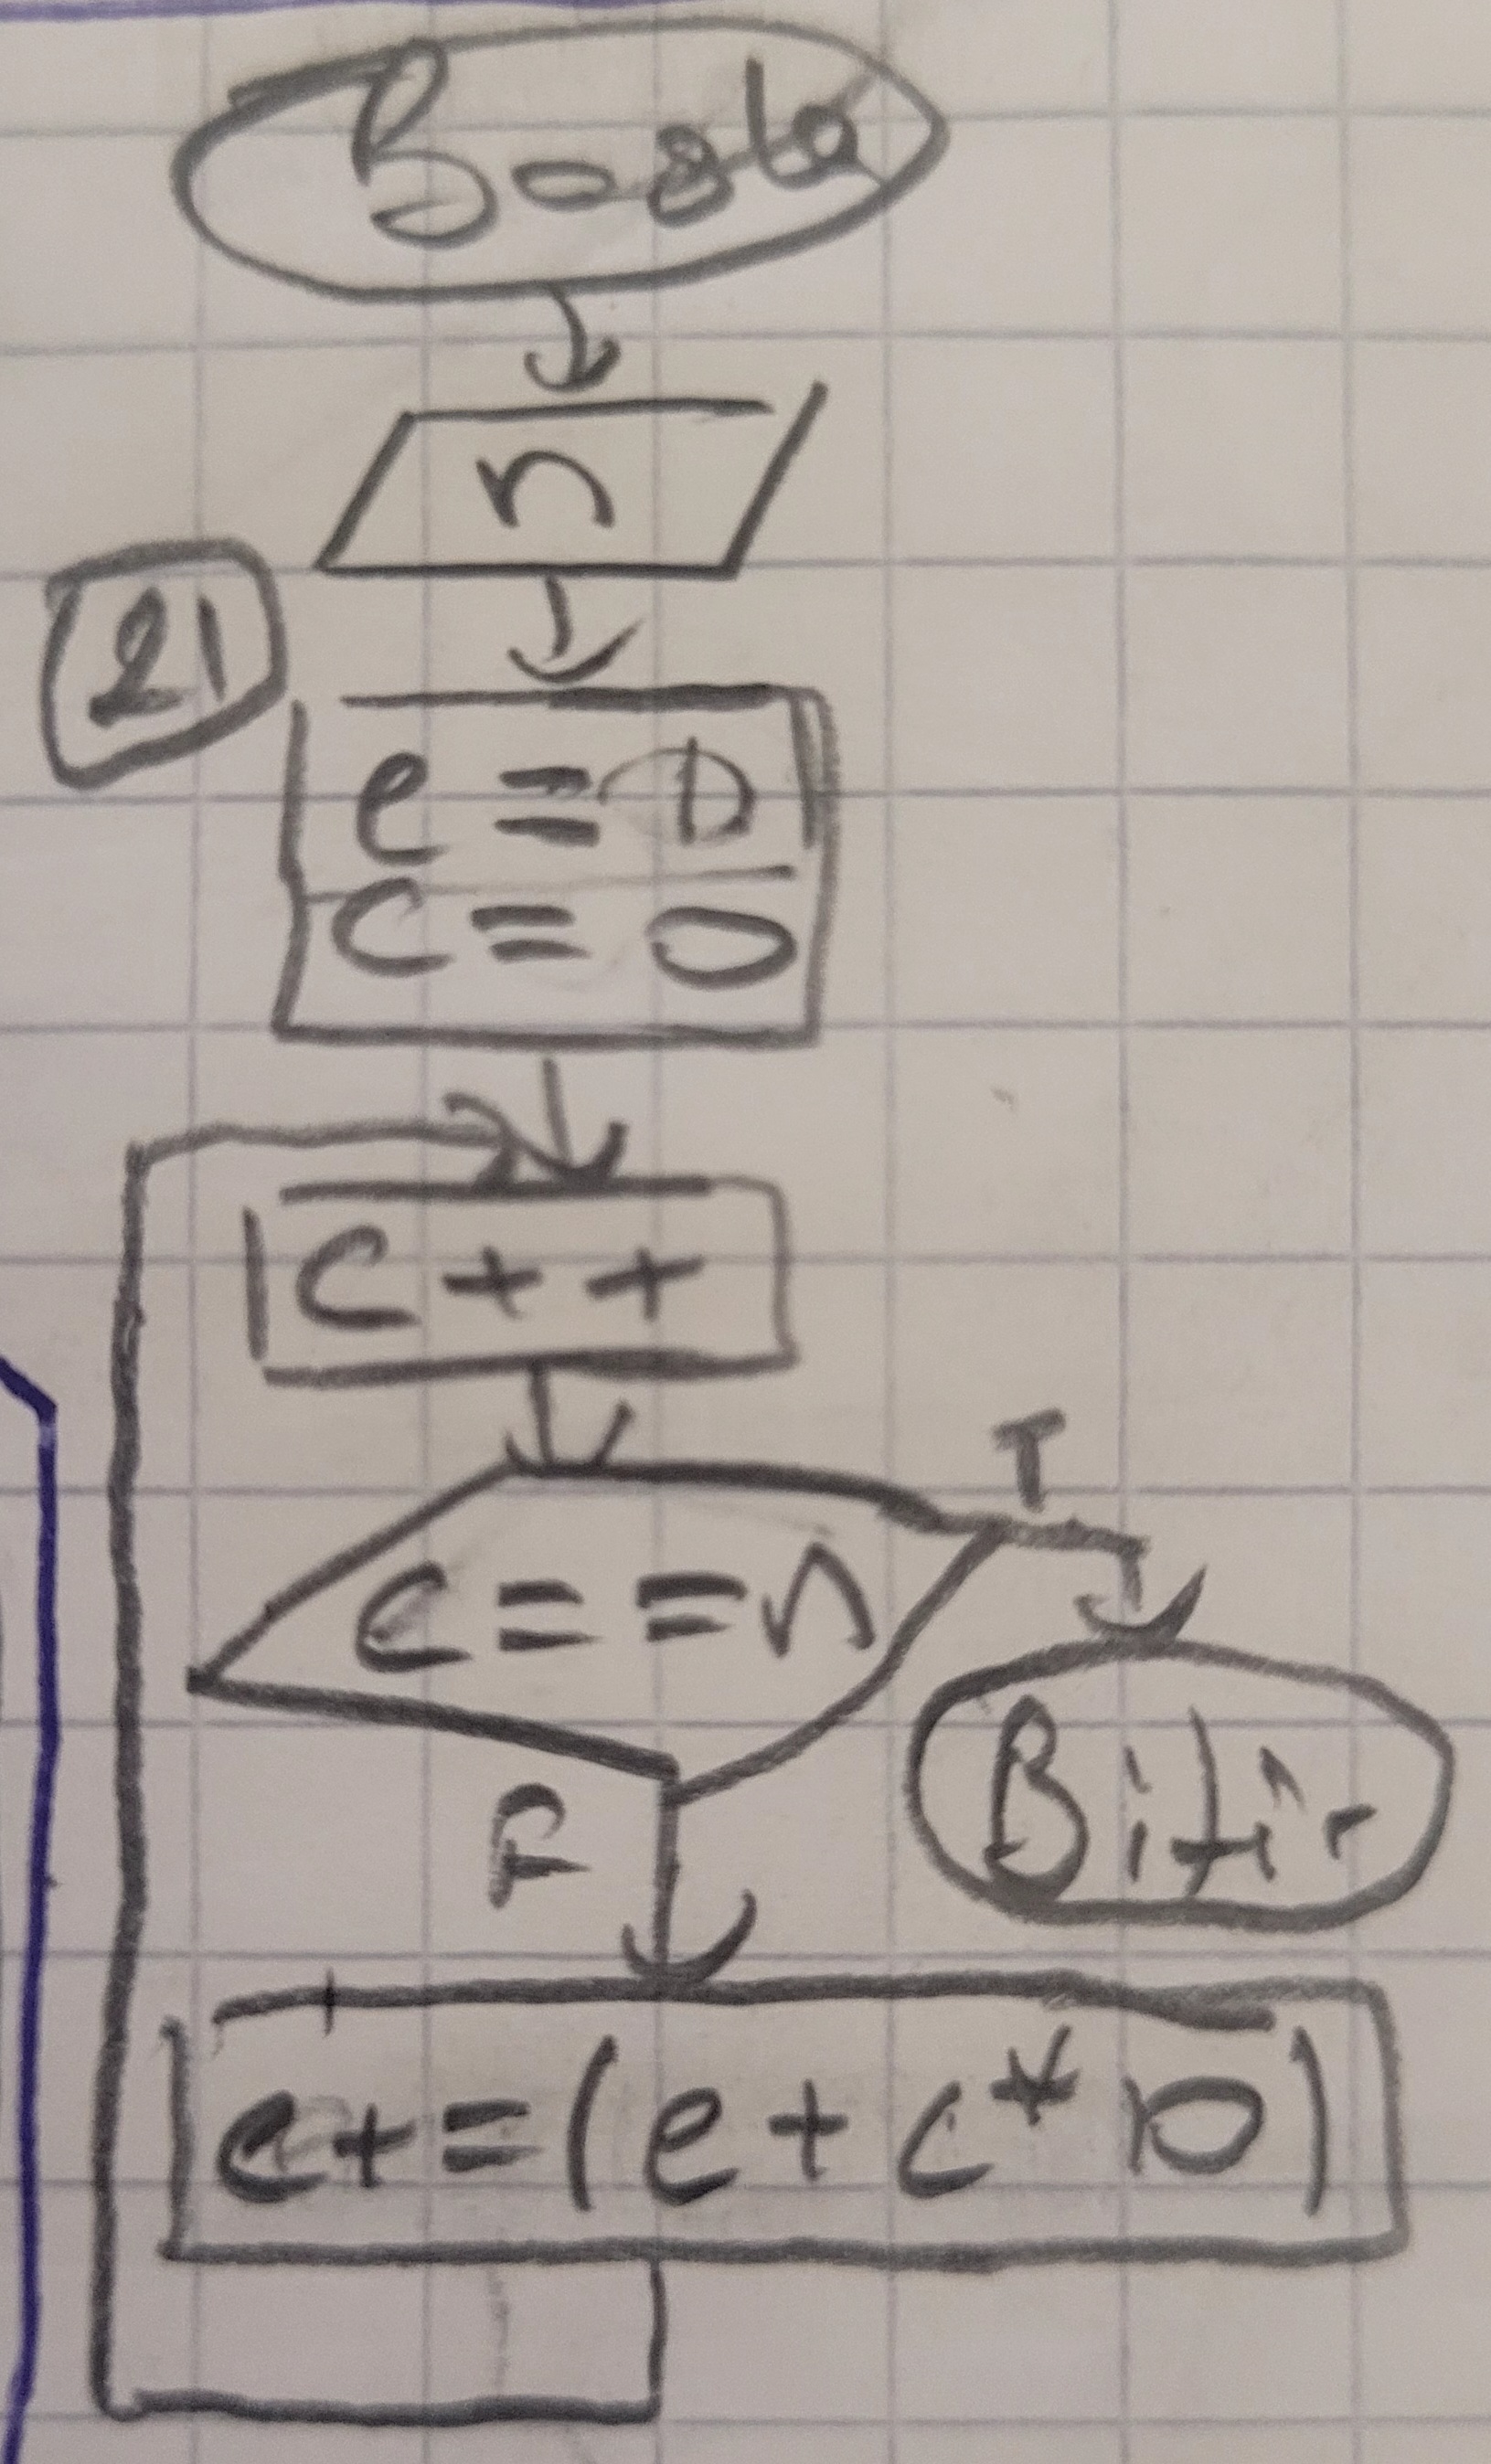 Başla
n
21
e = 
C = 0
C++
C==n
T
F
Bitir
e+=(e+c*10)